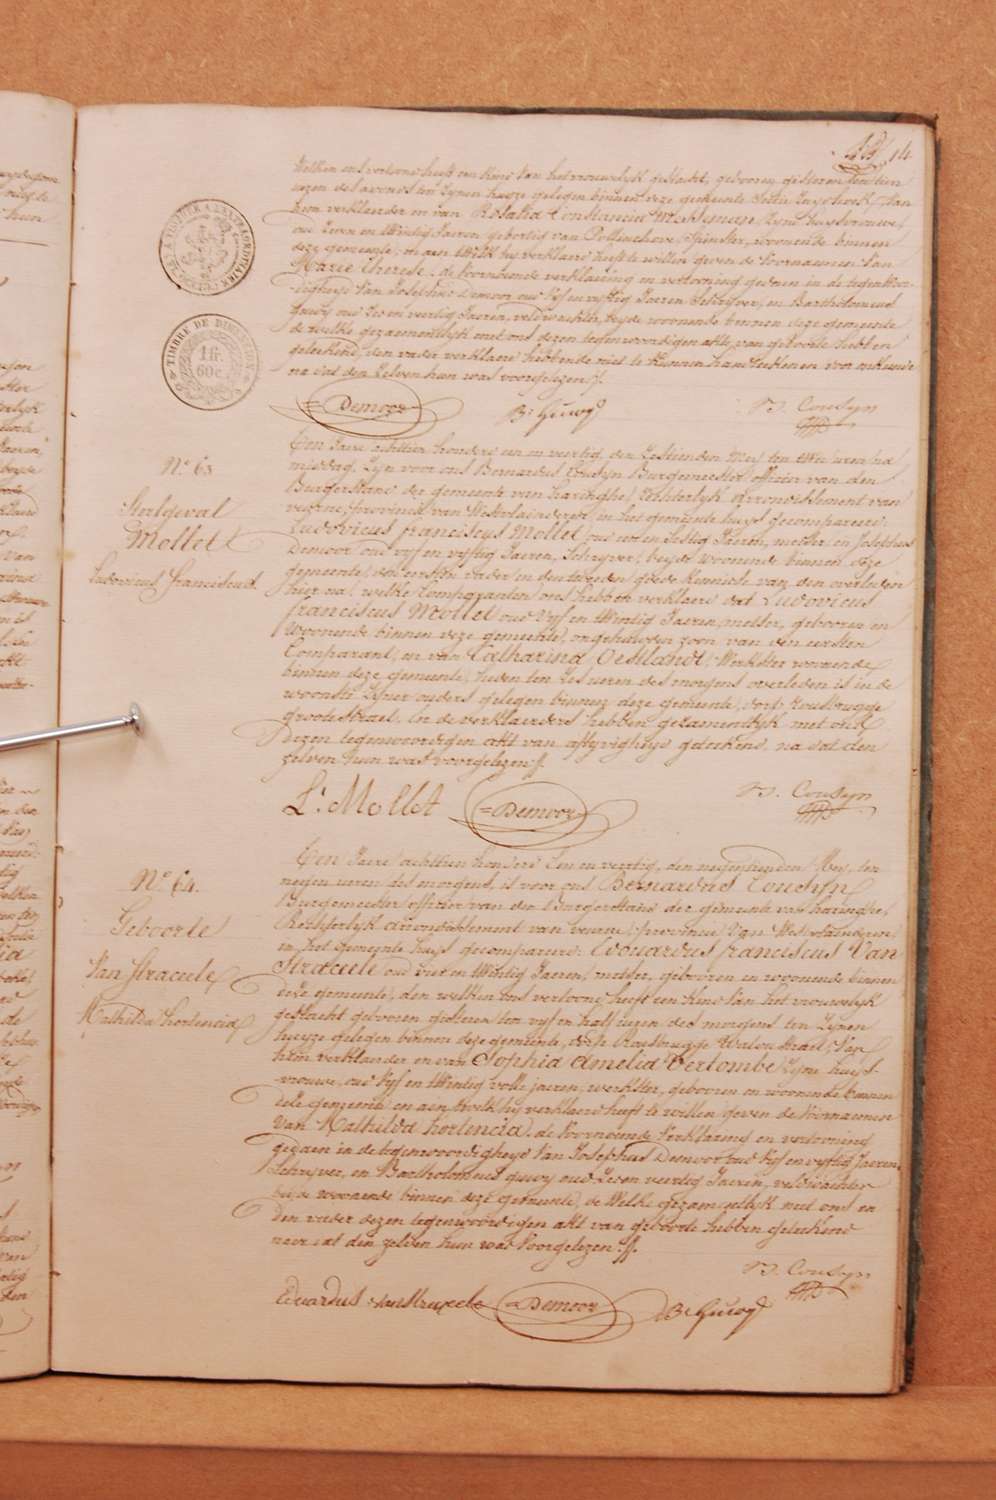 14
welken ons vertoont heeft een kind van het vrouwelyk geslacht, gebooren gisteren ten tien
uren des avonds ten zynen huyze gelegen binnen deze gemeente
hem verklaerder en van Rosalia Constancia zyne huysvrouwe,
oud zeven en twintig Jaeren gebortig van Pollinchove, Spinster, woonende binnen
deze gemeente, en aen welk hy verklaert heeft te willen geven de voornaemen van
Marie Therese, de voornoemde verklaering en vertooning gedaen in de tegenwoor-
digheyd van Josephus Demoor oud vyf en vyftig Jaeren Schryver, en Bartholomeus
oud zeven en veertig Jaeren, veldwachter, beyde woonende binnen deze gemeente
de welke gezaementlyk met ons dezen tegenwoordigen akte van geboorte hebben
geteekend, den vader verklaert hebbende niet te kunnen handteekenen voor
na dat den zelven hun was voorgelezen.
TIMBRE DE DIMENSION
1 fr.
60c.
Demoor
B. Cousyn
N.º 63
Sterfgeval
Mollet
Ludovicus Franciscus
Een Jaere achttien honderd een en veertig, den zesthienden Mey ten twee uren na
middag, zyn voor ons Bernardus Cousyn Burgemeester officier van den
Burgerstand der gemeente van haringhe, Rechterlyk arrondissement van
veurne, provincie van Westvlaenderen, in het gemeente huys gecompareerd:
Ludovicus franciscus Mollet oud een en sestig Jaeren, metser, en Josephus
Demoor oud vyf en vyftig Jaeren, Schryver, beyde woonende binnen deze
gemeente, den eersten vader en den tweeden goede kennisse van den overleden
hier na, welke Comparanten ons hebben verklaerd dat Ludovicus
franciscus Mollet oud vyf en twintig Jaeren, metser, gebooren en
woonende binnen deze gemeente, ongehuwden zoon van den eersten
Comparant, en van Catharina Oestlandt, Werkster woonende
binnen deze gemeente, heden ten zes uren des morgens overleden is in de
woonste zyner ouders gelegen binnen deze gemeente, dorp Rousbrugge
groote straet. En de verklaerders hebben gezamentlyk met ons
dezen tegenwoordigen akt van aflyvigheyd geteekend, na dat den
zelven hun was voorgelezen.
L. Mollet
Demoor
B. Cousyn
N.º 64.
Geboorte
Van Straceele
Mathilda hortencia
Een Jaere achttien honderd Een en veertig, den negentienden Mey, ten
negen uren des morgens, is voor ons Bernardus Cousyn
Burgemeester officier van den Burgerstand der gemeente van haringhe,
Rechterlyk arrondissement van veurne, provincie van Westvlaenderen
in het gemeente huys gecompareerd: Edouardus franciscus Van
Straceele oud vier en twintig Jaeren, metser, gebooren en woonende binnen
deze gemeente, den welken ons vertoont heeft een kind van het vrouwelyk
geslacht gebooren gisteren ten vyf en half uren des morgens ten zynen
huyze gelegen binnen deze gemeente, dorp Rousbrugge Straet, van
hem verklaerder en van Sophia Amelia Vertombe zyne huys-
-vrouwe, oud vyf en twintig volle jaeren, werkster, gebooren en woonende binnen
deze gemeente en aen welk hy verklaert heeft te willen geven de voornaemen
van Mathilda hortencia. de voornoemde verklaering en vertooning
gedaen in de tegenwoordigheyd van Josephus Demoor oud vyf en vyftig Jaeren,
Schryver, en Bartholomeus oud zeven en veertig Jaeren, veldwachter
beyde woonende binnen deze gemeente, de welke gezamentlyk met ons en
den vader dezen tegenwoordigen akt van geboorte hebben geteekend
naer dat den zelven hun was voorgelezen.
B. Cousyn
Eduardus van Straceele
Demoor